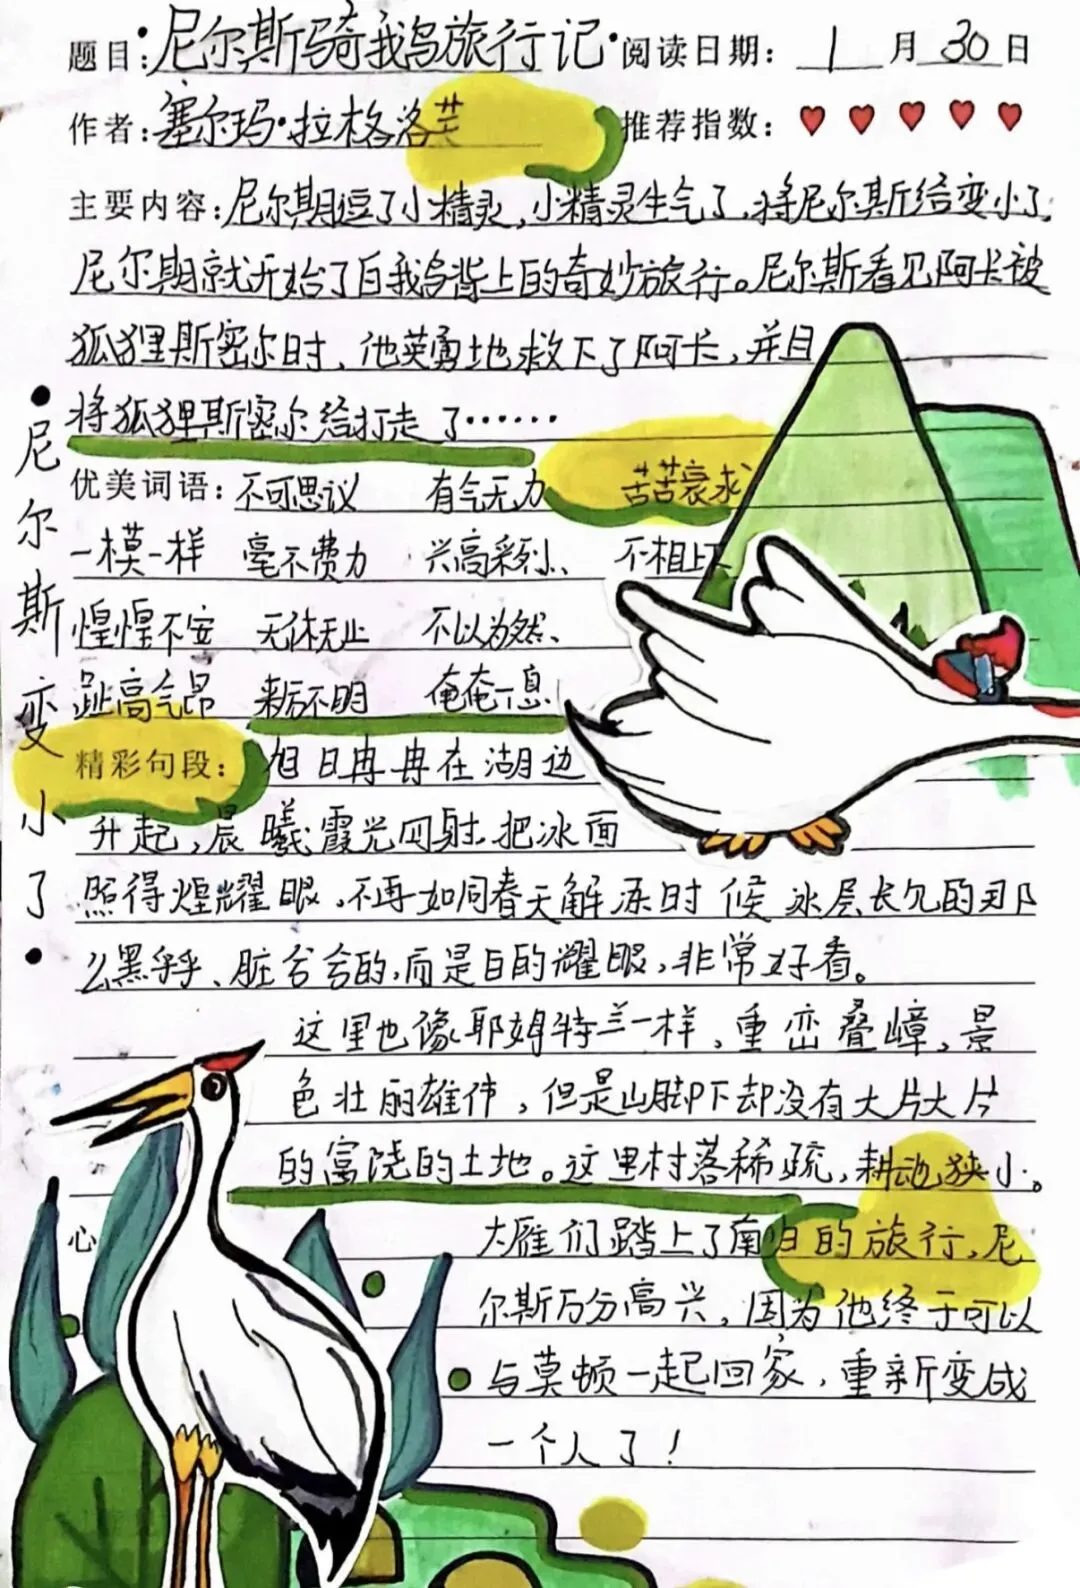 题目:尼尔斯骑鹅旅行记 阅读日期: 1月30日
作者:塞尔玛·拉格洛芙 推荐指数:
主要内容:尼尔期逗了小精灵,小精灵生气了,将尼尔斯给变小了,
尼尔期就开始了白鹅背上的奇妙旅行。尼尔斯看见阿卡被
狐狸斯密尔时、他英勇地救下了阿卡,并且
将狐狸斯密尔给打走了……
优美词语:不可思议 有气无力 苦苦哀求
一模一样 毫不费力 兴高采烈、 不相上下
惶惶不安 无休无止 不以为然、
趾高气昂 来历不明 俺俺一息
精彩句段: 旭日冉冉在湖边
升起,晨曦霞光四射.把冰面
照得煌耀眼,不再如同春天解冻时候 冰层长久的那
么黑乎乎、脏兮兮的,而是白的耀眼,非常好看。
这里也像耶姆特兰一样,重峦叠嶂,景
色壮丽雄伟,但是山脚下却没有大片大片
的富饶的土地。这里村落稀疏,耕地狭小。
心
大雁们踏上了南归的旅行,尼
尔斯万分高兴,因为他终于可以
与莫顿一起回家,重新变成
一个人了!
·尼尔斯变小了·